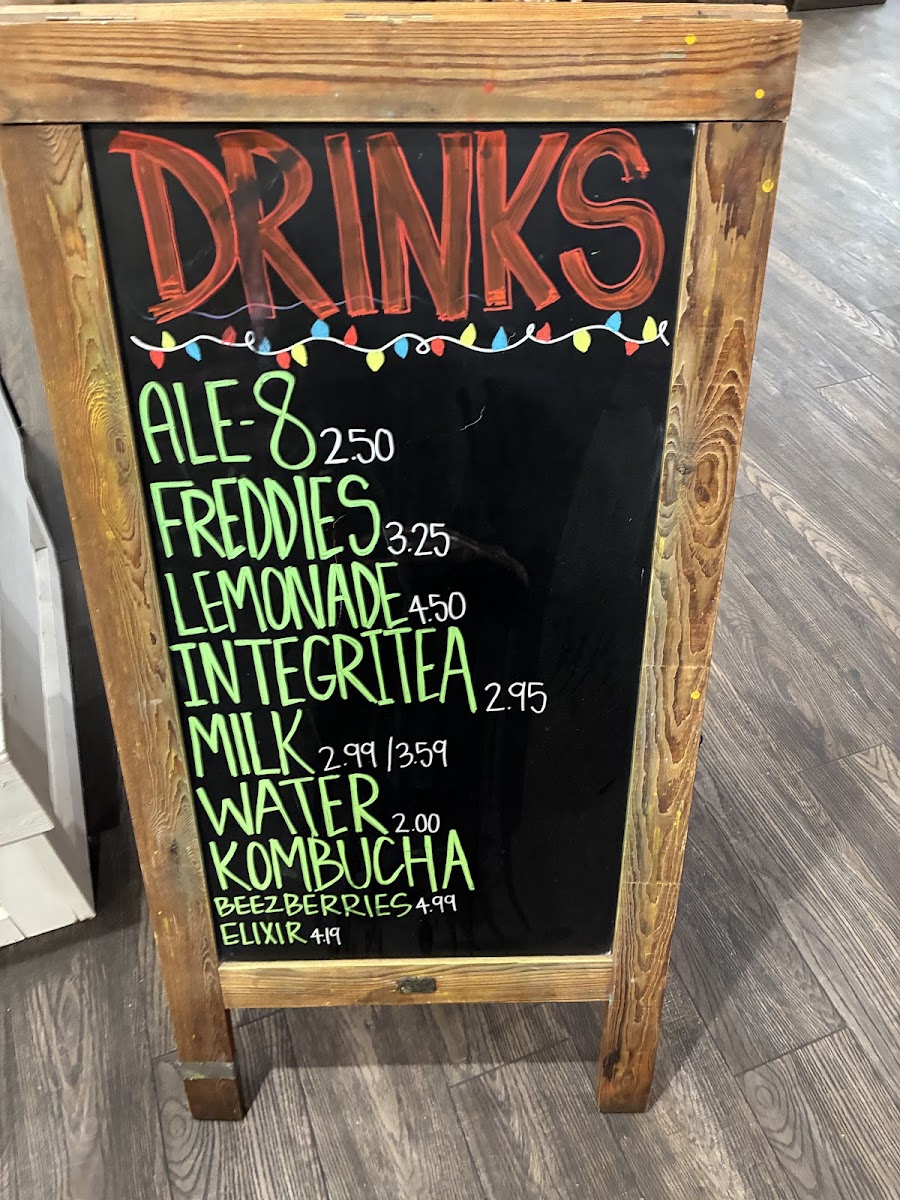 DRINKS
ALE-8 2.50
FREDDIES 3.25
LEMONADE 4.50
INTEGRITEA 2.95
MILK 2.99/3.59
WATER 2.00
KOMBUCHA
BEEZBERRIES 4.99
ELIXIR 4.19